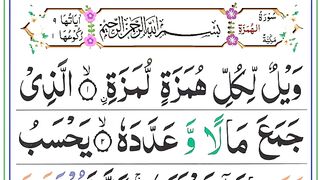 سُوْرَةُ الهُمَزَةِ مَكِّيَّةٌ
بِسْمِ اللّٰهِ الرَّحْمٰنِ الرَّحِيْمِ
اٰيَاتُهَا ٩ رُكُوْعُهَا
وَيْلٌ لِّكُلِّ هُمَزَةٍ لُّمَزَةٍ ۙ‏ ﴿۱﴾ اۨلَّذِىْ
جَمَعَ مَالًا وَّ عَدَّدَهٗ ۙ‏ ﴿۲﴾ يَحْسَبُ